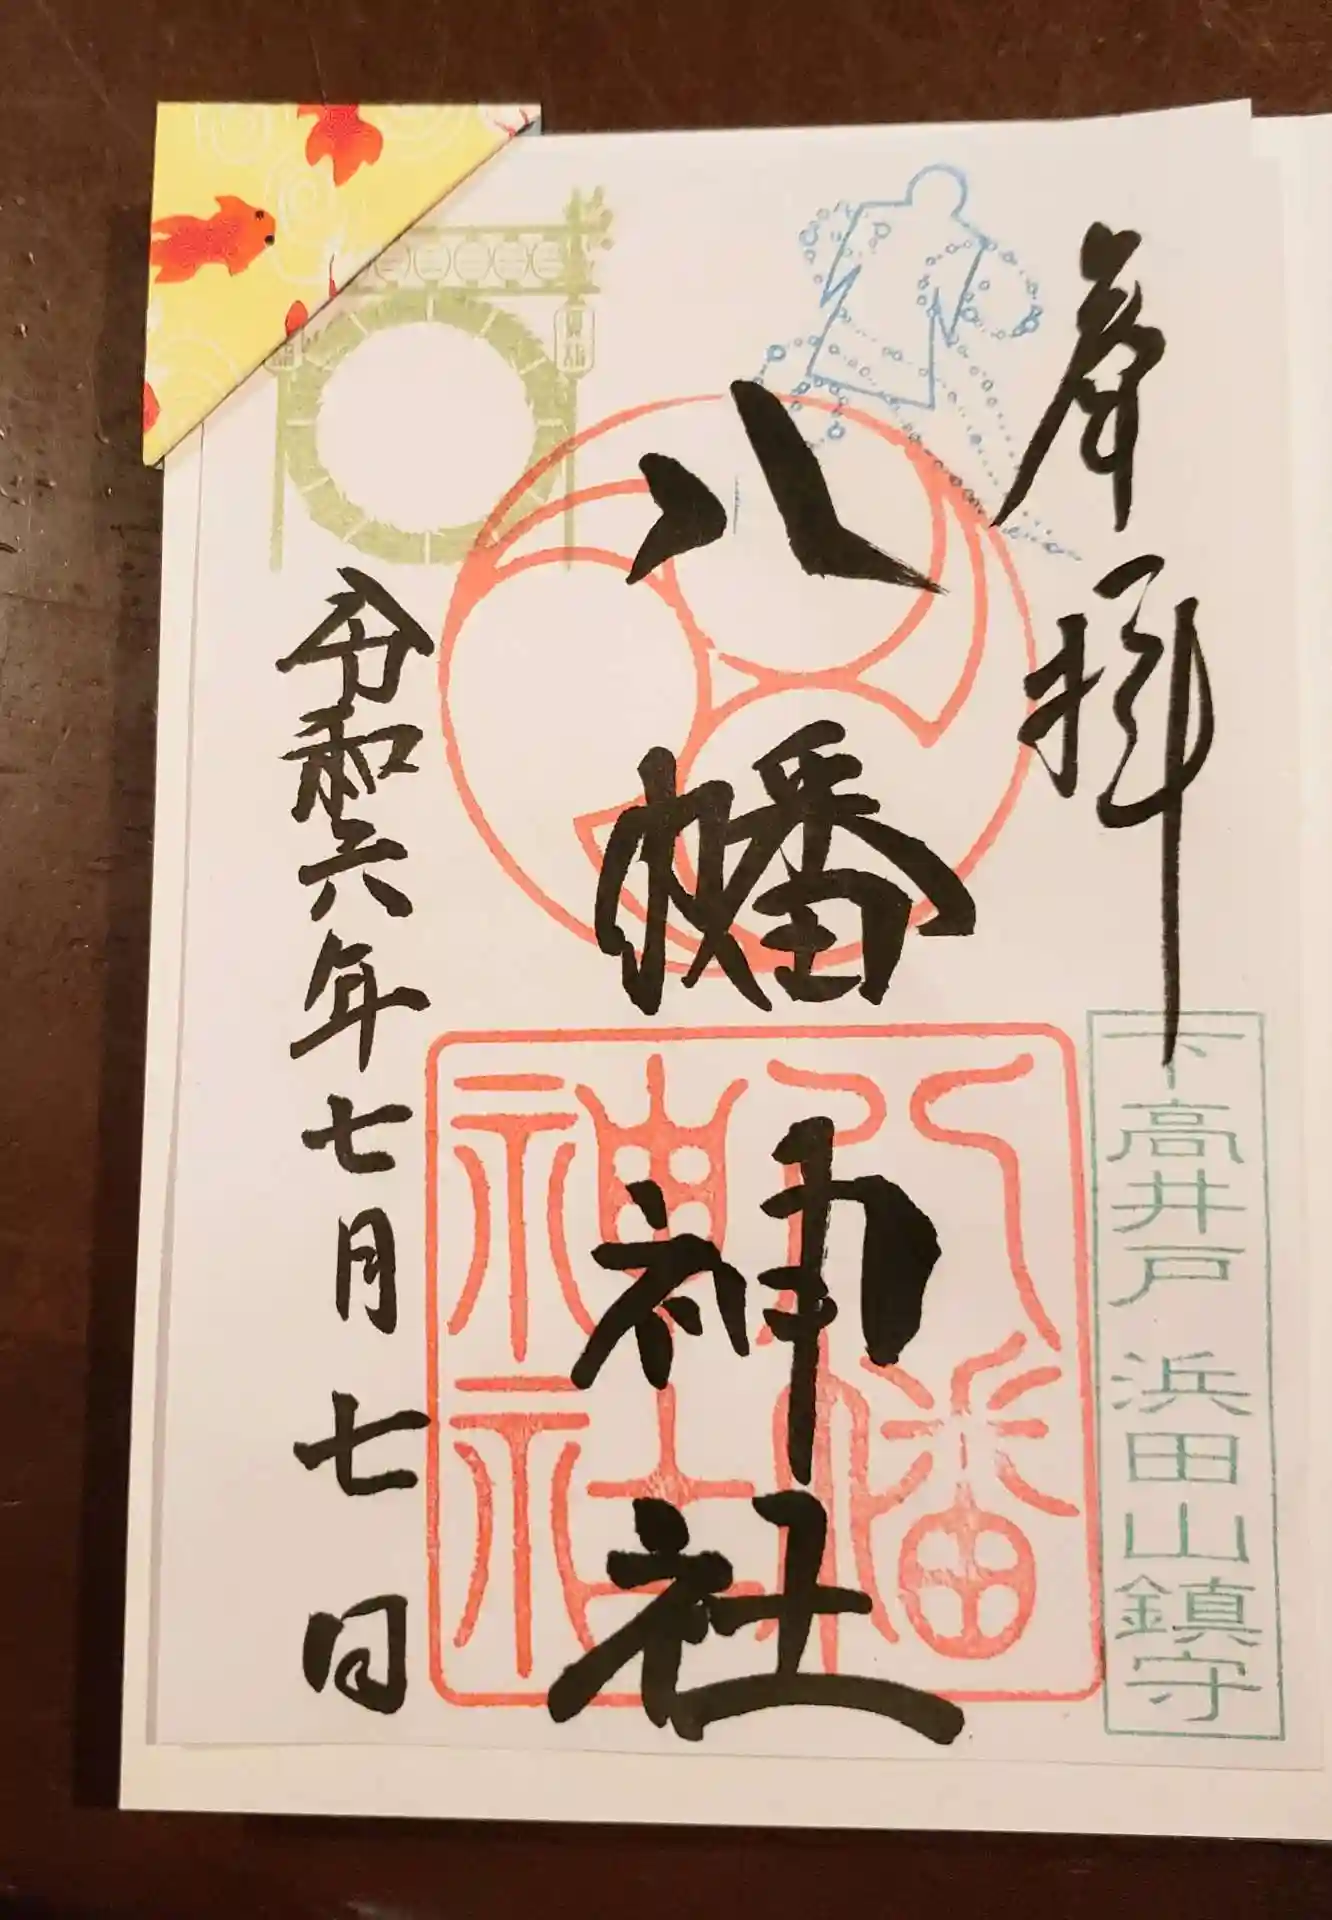 奉拝
下高井戸浜田山鎮守
八幡神社
八幡神社
令和六年七月七日